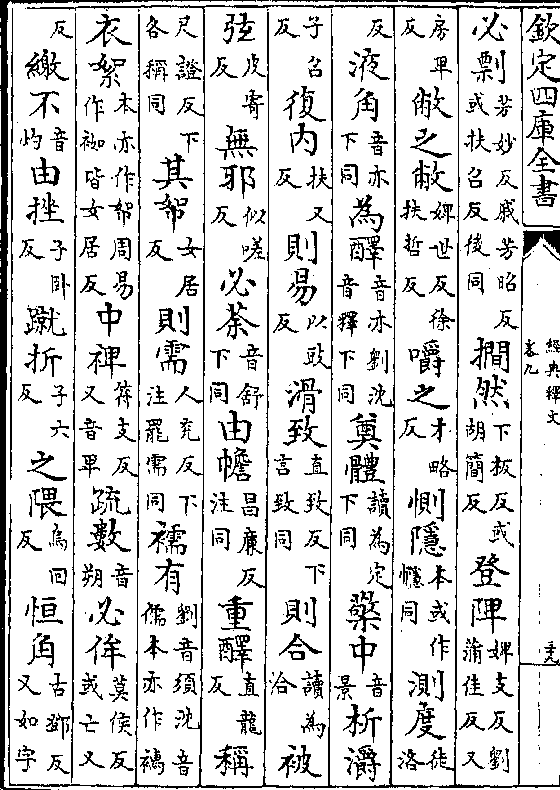 欽定四庫全書
經典釋文
卷九
必剽芳妙反戚芳昭反或扶召反後同撊然下板反或胡簡反登陴婢支反劉蒲佳反又
房卑反敝之敝婢世反徐扶哲反嚼之才略反惻隱本或作㥯同測度徒洛
反液角音亦下同為醳音亦劉沈音釋下同奠體讀為定下同藥中音景析灂
子召反復内扶又反則易以豉反滑致直致反下言致同則合讀為洽被
弦皮寄反無邪似嗟反必荼音舒下同由幨昌廉反注同重醳直龍反稱
尺證反下各稱同其帤女居反則需人兖反下注罷需同襦有劉音須沈音儒本亦作襦
衣絮本亦作帤周易作袽皆女居反中裨符支反又音卑疏數音朔必侔莫侯反或亡又
反繳不音灼由挫子卧反蹴折子六反之隈烏回反恒角古鄧反又如字